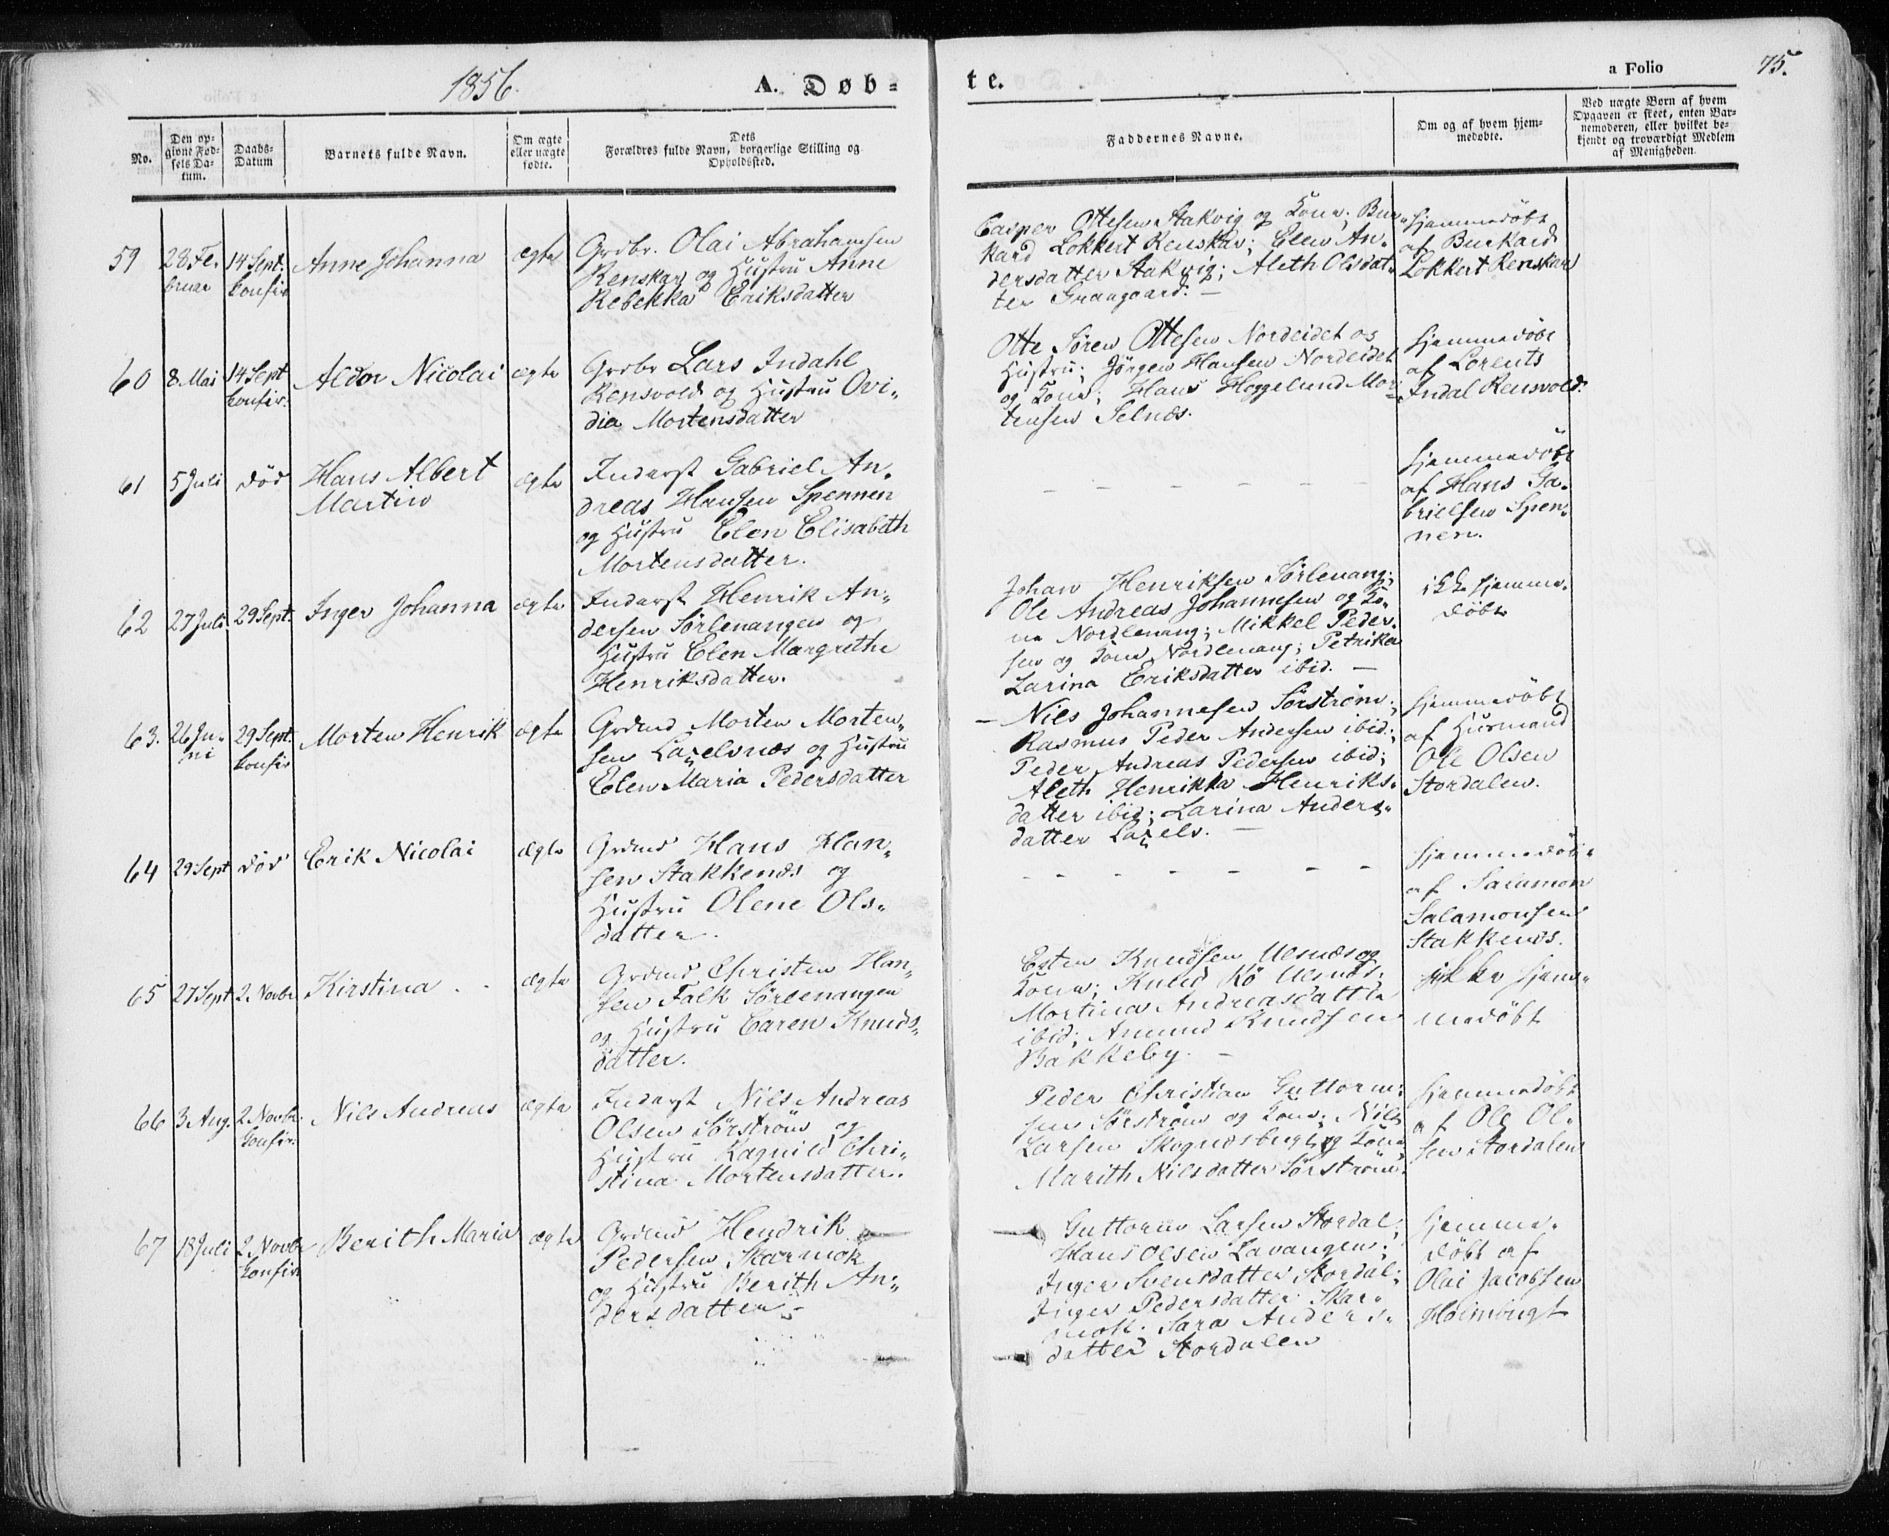 1856.
A. Døb-
te.
a Folio
75.
No.
Den op-
givne Fød-
sels Da-
tum.
Daabs-
Datum
Barnets fulde Navn.
Om ægte
eller uægte
fødte.
Dets
Forældres fulde Navn, borgerlige Stilling og
Opholdssted.
Faddernes Navne.
Om og af hvem hjem-
medøbte.
Ved uægte Børn af hvem
Opgaven er skeet, enten Bar-
nemoderen, eller hvilket be-
kjendt og troværdigt Medlem
af Menigheden.
59
28 Fe-
bruar
14 Sept.
Confir
Anne Johanna
ægte
Grdbr. Olai Abrahamsen
Renskar og Hustru Anne
Rebekka Eriksdatter
Casper Ottesen Aakvig og Kone; Bur-
kard Lokkert Renskar; Elen An-
dersdatter Aakvig; Aleth Olsdat-
ter Graagaard. —
hjemmedöbt
af Burkard
Lokkert Renskar
60
8. Mai
14 Sept
Confir.
Aldor Nicolai
ægte
Grdbr Lars Indahl
Rensvold og Hustru Ovi-
dia Mortensdatter
Otte Sören Ottesen Nordeidet og
Hustru; Jörgen Hansen Nordeidet
og Kone; Hans Heggelund Mor-
tensen Selnæs.
hjemmedöbt
af Lorents
Indal Rensvold.
61
5 Juli
död
Hans Albert
Martin
ægte
Inderst Gabriel An-
dreas Hansen Spennen
og Hustru Elen Elisabeth
Mortensdatter.
— — — — — —
hjemmedöbt
af Hans Ga-
brielsen Spen-
nen.
62
27 Juli
29 Sept.
Inger Johanna
ægte
Inderst Henrik An-
dersen Sörlenangen og
Hustru Elen Margrethe
Henriksdatter.
Johan Henriksen Sörlenang;
Ole Andreas Johannesen og Ko-
ne Nordlenang; Mikkel Peder-
sen og Kone Nordlenang; Petrikka
Larina Eriksdatter ibid. —
ikke hjemme-
döbt
63.
26 Ju-
ni
29 Sept.
Confir
Morten Henrik
ægte
Grdmd Morten Morten-
sen Lazelvnæs og Hustru
Elen Maria Pedersdatter
— Nils Johannesen Sörström;
Rasmus Peder Andersen ibid.;
Peder Andreas Pedersen ibid;
Aleth Henrikka Henriks-
datter ibid; Larina Anders-
datter Lazelv. —
hjemmedöbt
af Husmand
Ole Olsen
Stordalen.
64
29 Sept
död
Erik Nicolai
ægte
Grdmd Hans Han-
sen Stakkenæs og
Hustru Olene Ols-
datter.
— — — — — — —
hjemmedöbt
af Salamon
Salamonsen
Stakkenæs.
65
27 Sept
2. Novbr
Kirstina
ægte
Grdmd Christen Han-
sen Falk Sörlenangen
og Hustru Caren Knuds-
datter.
Esten Knudsen Uesnæs og
Kone; Knud Kö Uesnæs;
Mortina Andreasdatter
ibid; Amund Knudsen
Bakkeby. —
ikke hjem-
medöbt
66
3 Aug.
2 Novbr
Confir.
Nils Andreas
ægte
Inderst Nils Andreas
Olsen Sörström og
Hustru Ragnild Chri-
stina Mortensdatter.
Peder Christian Guttorm-
sen Sörström og Kone; Nils
Larsen Skognæsbugt og Kone
Marith Nilsdatter Sörström.
hjemmedöbt
af Ole Ol-
sen Stordalen
67
18 Juli
2 Novbr
Confir
Berith Maria
ægte
Grdmd Hendrik
Pedersen Skarmok
og Hustru Berith An-
dersdatter
Guttorm Larsen Stordal;
Hans Olsen Lavangen;
Inger Svensdatter Stordal;
Inger Pedersdatter Skar-
mok; Sara Anders-
datter Stordalen
hjemme-
döbt af
Olai Jacobsen
Holmbugt